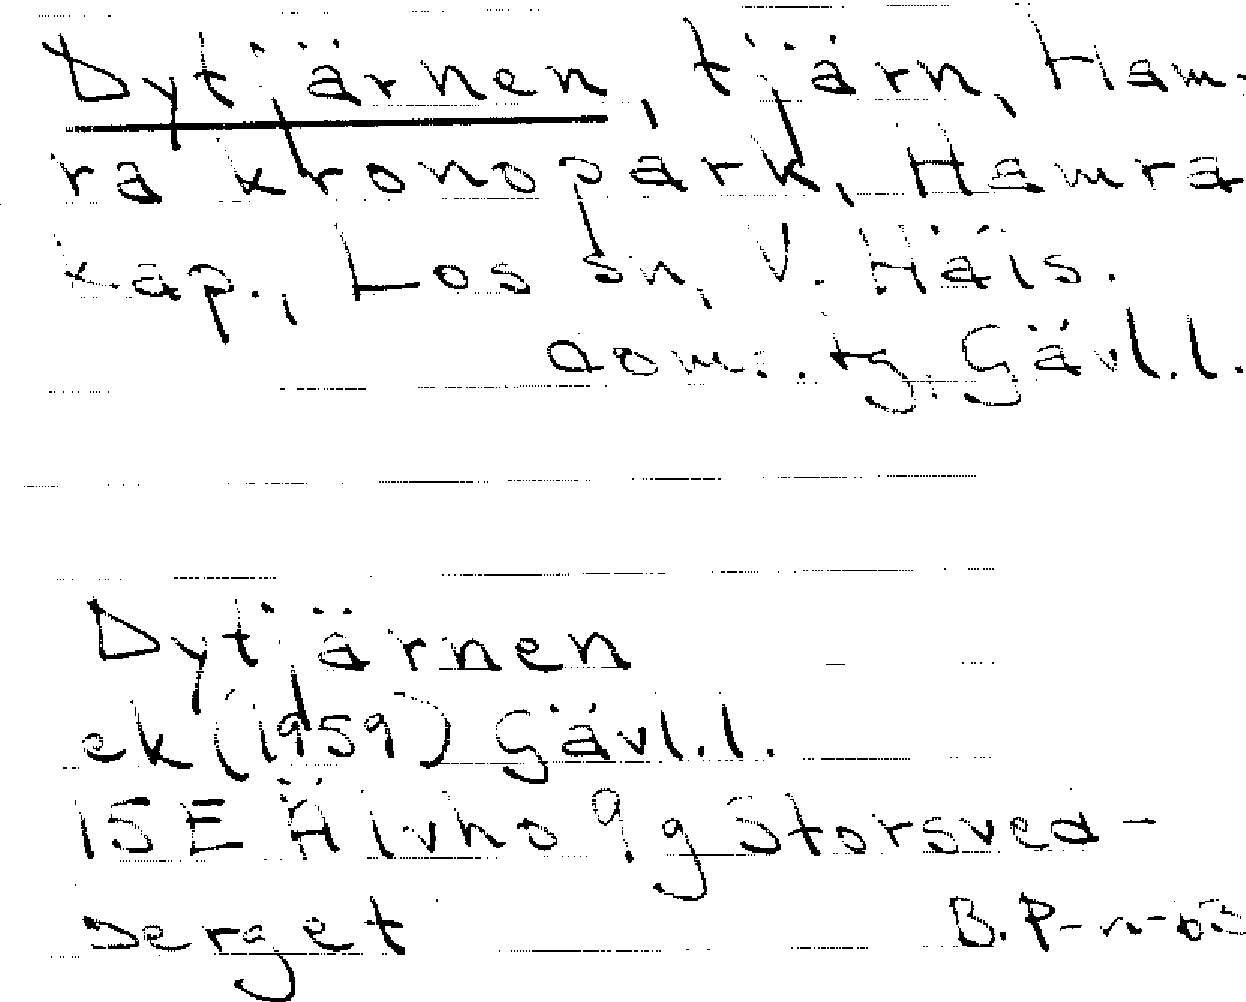 Dytjärnen, tjärn, Ham-
ra kronopark, Hamra
kap., Los sn, V. Häls.
dom:.tg. Gävl.l.
Dytjärnen
ek (1959) Gävl.l.
15E Älvho 9g Storsved-
berget B.P-n-63